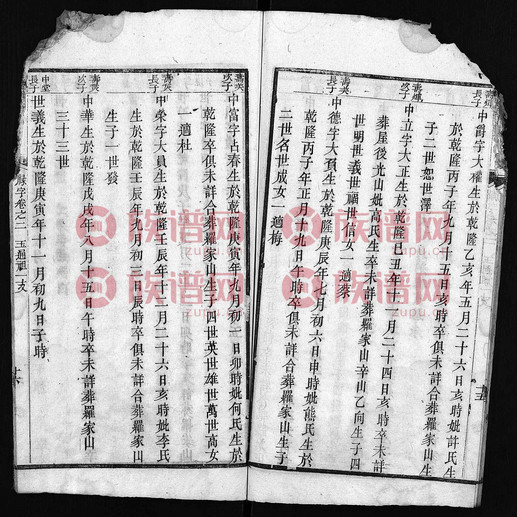 壽嫄長子
中爵字大權生於乾隆乙亥年五月二十六日亥時妣許氏生
於乾隆丙子年九月十五日亥時卒俱未詳合葬羅家山生
子二世恕世澤
壽嫄次子
中立字大正生於乾隆己丑年十二月二十四日亥時卒未詳
葬屋後光山妣高氏生卒未詳葬羅家山辛山乙向生子四
世明世義世福世佑女一適蔡
壽英長子
中德字大預生於乾隆庚辰年七月初六日申時妣熊氏生於
乾隆丙子年正月十九日亥時卒俱未詳合葬羅家山生子
二世名世成女一適梅
壽英次子
中富字占春生於乾隆庚寅年九月初一日卯時妣何氏生於
乾隆卒俱未詳合葬羅家山生子四世英世雄世萬世高女
一適杜
壽奕長子
中榮字大員生於乾隆壬辰年十二月二十六日亥時妣李氏
生於乾隆壬辰年九月初三日辰時卒俱未詳合葬羅家山
生子一世發
壽奕次子
中華生於乾隆戊戌年八月十五日午時卒未詳葬羅家山
三十三世
中堂長子
世義生於乾隆庚寅年十一月初九日子時
字卷之二 五週祖一支
族谱网
zupu.cn
族谱网
zupu.cn
族谱网
zupu.cn
族谱网
zupu.cn